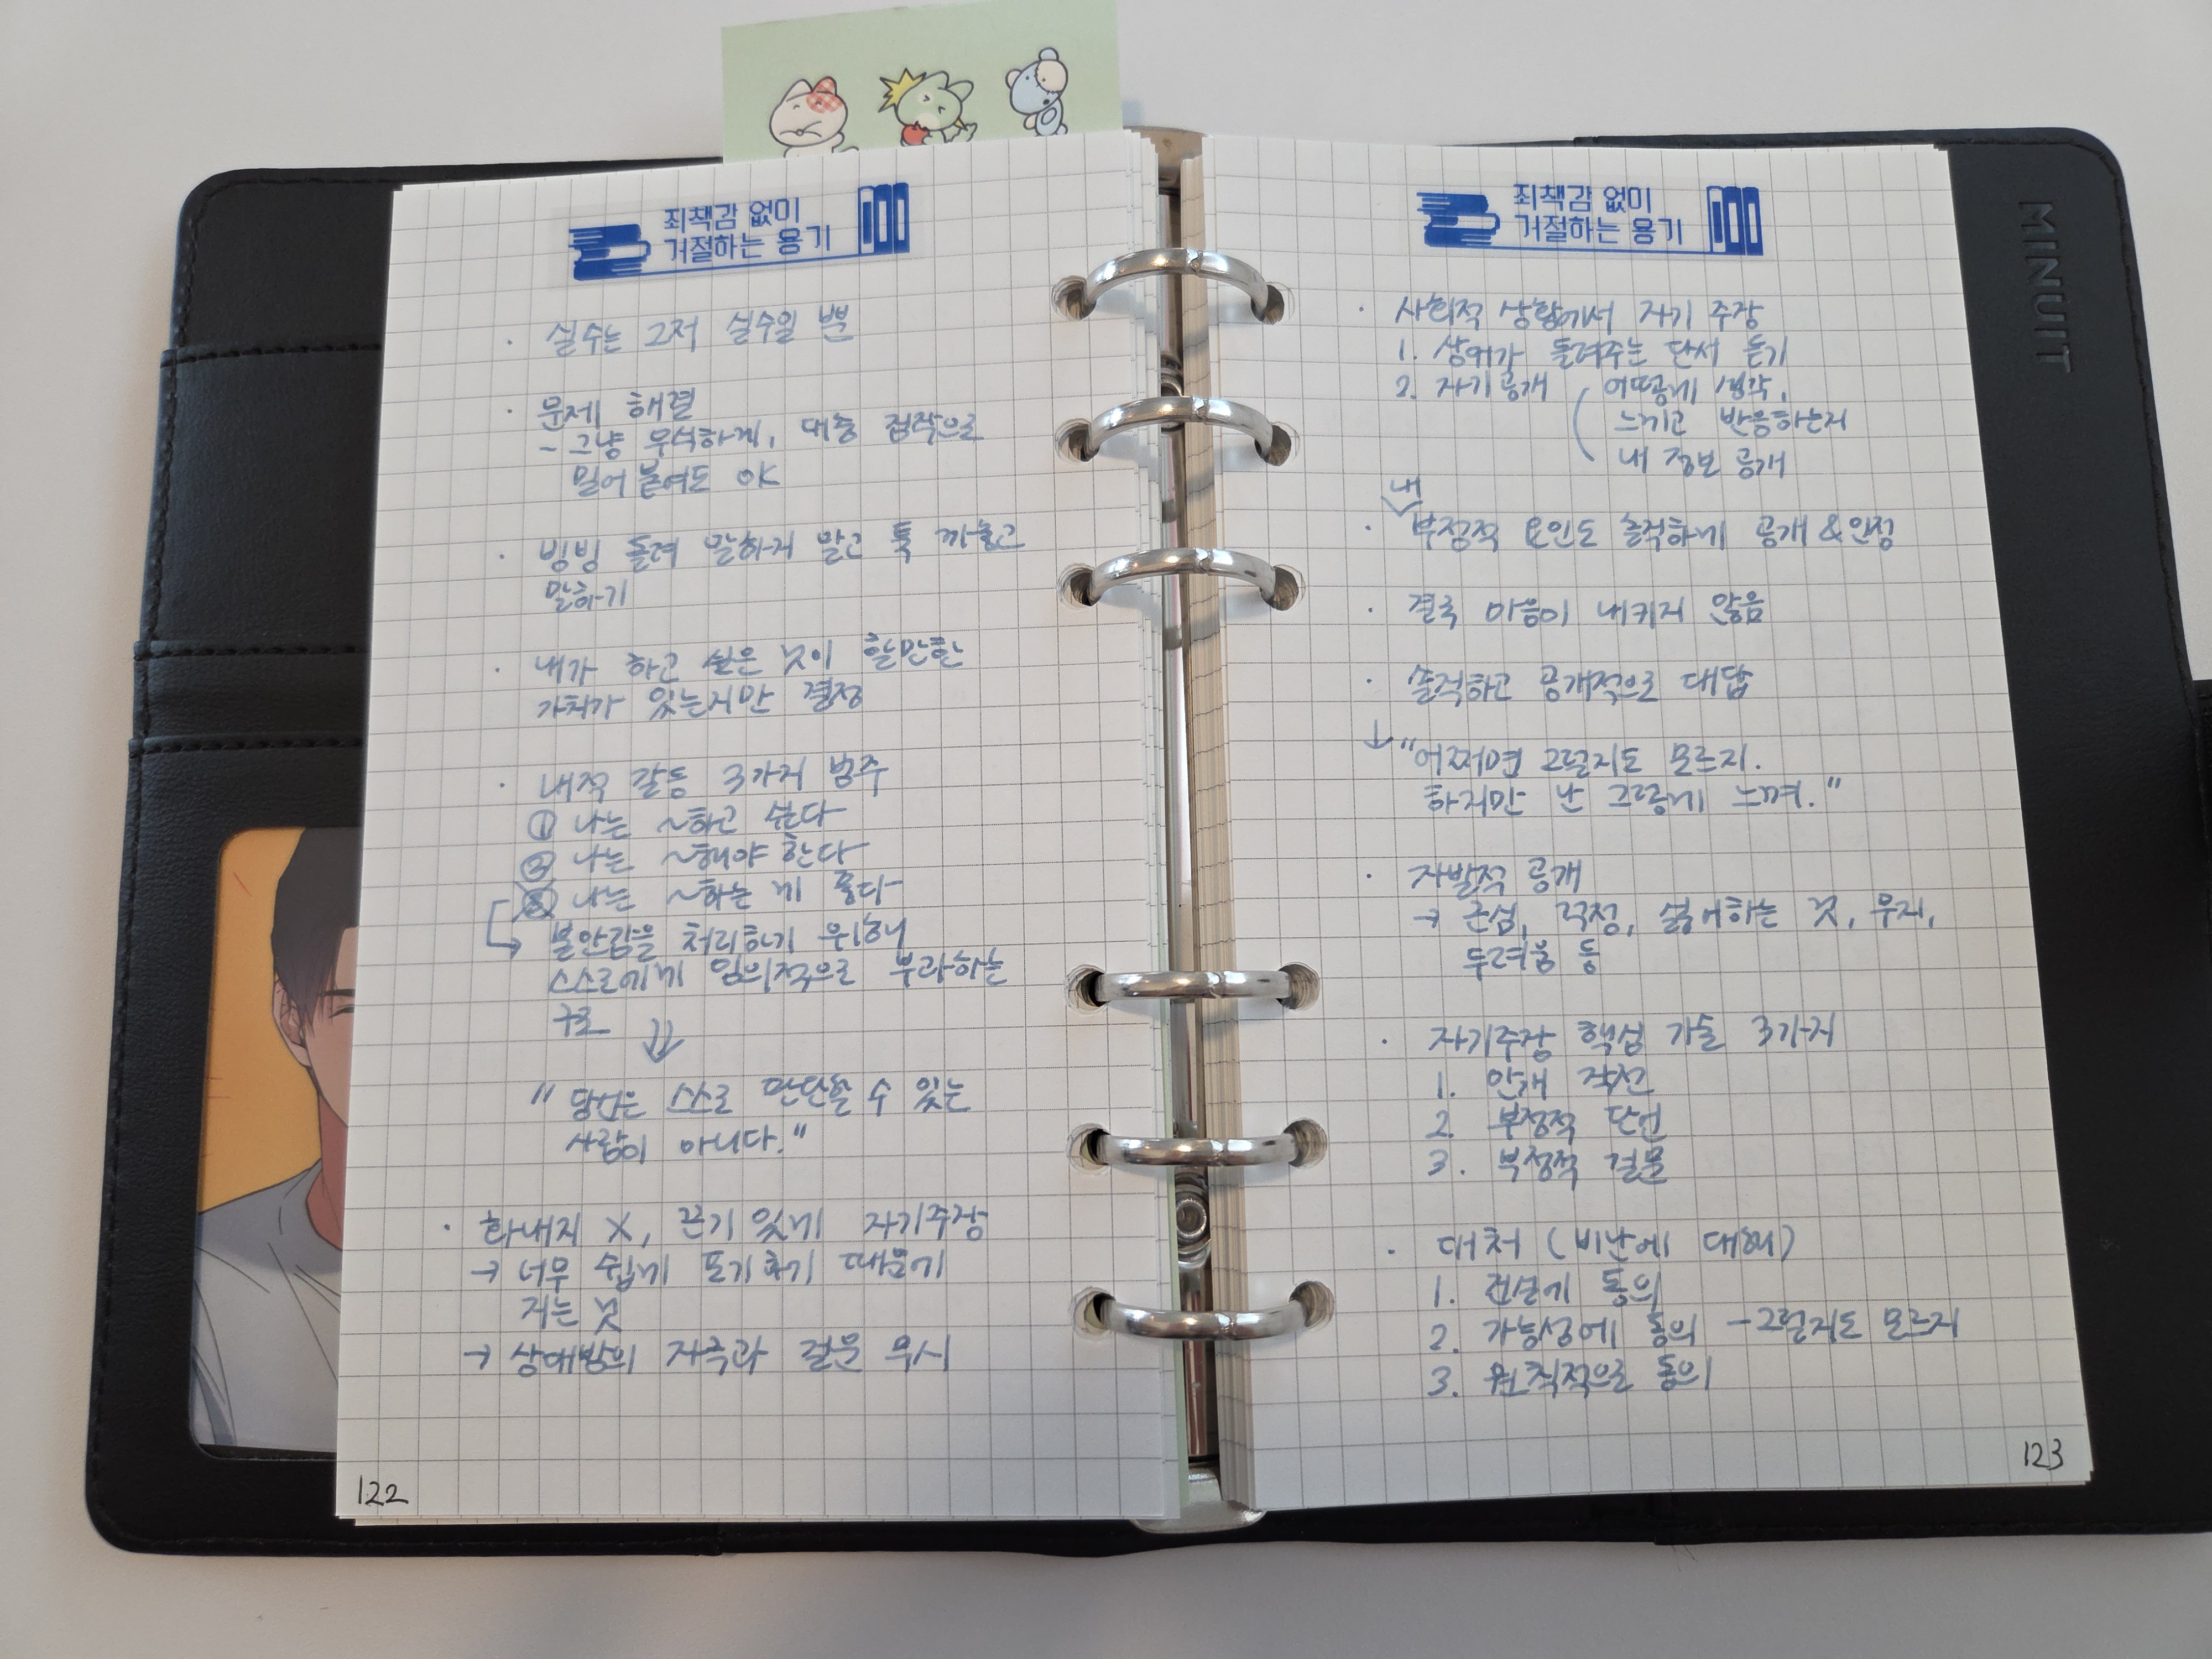 죄책감 없이
거절하는 용기
· 실수는 그저 실수일 뿐
· 문제 해결
- 그냥 무식하게, 대충 짐작으로
밀어 붙여도 OK
· 빙빙 돌려 말하지 말고 툭 까놓고
말하기
· 내가 하고 싶은 것이 할만한
가치가 있는지만 결정
· 내적 갈등 3가지 범주
① 나는 ~하고 싶다
② 나는 ~해야 한다
③ 나는 ~하는 게 좋다
→ 불안감을 처리하기 위해
스스로에게 임의적으로 부과하는
구조
⇓
" 당신은 스스로 판단할 수 있는
사람이 아니다."
· 화내지 X, 끈기 있게 자기주장
→ 너무 쉽게 포기하기 때문에
지는 것
→ 상대방의 자극과 질문 무시
122
죄책감 없이
거절하는 용기
MINUIT
· 사회적 상황에서 자기 주장
1. 상대가 들려주는 단서 듣기
2. 자기 공개 ( 어떻게 생각,
느끼고 반응하는지
내 정보 공개
내
· 부정적 요인도 솔직하게 공개 & 인정
· 결국 마음이 내키지 않음
· 솔직하고 공개적으로 대답
↓ "어쩌면 그럴지도 모르지.
하지만 난 그렇게 느껴."
· 자발적 공개
→ 근심, 걱정, 싫어하는 것, 무지,
두려움 등
· 자기주장 핵심 기술 3가지
1. 안개 작전
2. 부정적 단언
3. 부정적 질문
· 대처 (비난에 대해)
1. 진실에 동의
2. 가능성에 동의 - 그럴지도 모르지
3. 원칙적으로 동의
123